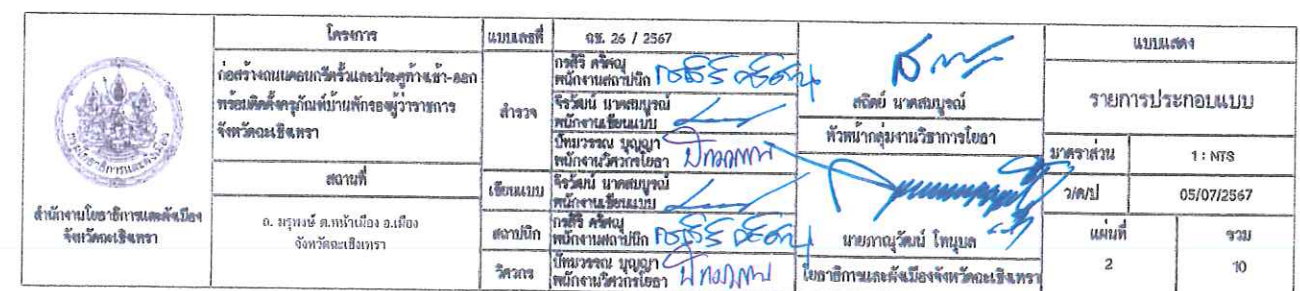 สำนักงานโยธาธิการและผังเมือง
จังหวัดฉะเชิงเทรา
โครงการ
ก่อสร้างถนนคอนกรีตรั้วและประตูทางเข้า-ออก
พร้อมติดตั้งครุภัณฑ์บ้านพักรองผู้ว่าราชการ
จังหวัดฉะเชิงเทรา
สถานที่
ถ. มรุพงษ์ ต.หน้าเมือง อ.เมือง
จังหวัดฉะเชิงเทรา
แบบเลขที่
ฉช. 26 / 2567
สำรวจ
กรสิริ ศรีศณุ
พนักงานสถาปนิก
จิรวัฒน์ นาคสมบูรณ์
พนักงานเขียนแบบ
ปัทมวรรณ บุญญา
พนักงานวิศวกรโยธา
เขียนแบบ
จิรวัฒน์ นาคสมบูรณ์
พนักงานเขียนแบบ
สถาปนิก
กรสิริ ศรีศณุ
พนักงานสถาปนิก
วิศวกร
ปัทมวรรณ บุญญา
พนักงานวิศวกรโยธา
สถิตย์ นาคสมบูรณ์
หัวหน้ากลุ่มงานวิชาการโยธา
นายภาณุวัฒน์ โทนุบล
โยธาธิการและผังเมืองจังหวัดฉะเชิงเทรา
แบบแสดง
รายการประกอบแบบ
มาตราส่วน
1 : NTS
ว/ด/ป
05/07/2567
แผ่นที่
รวม
2
10